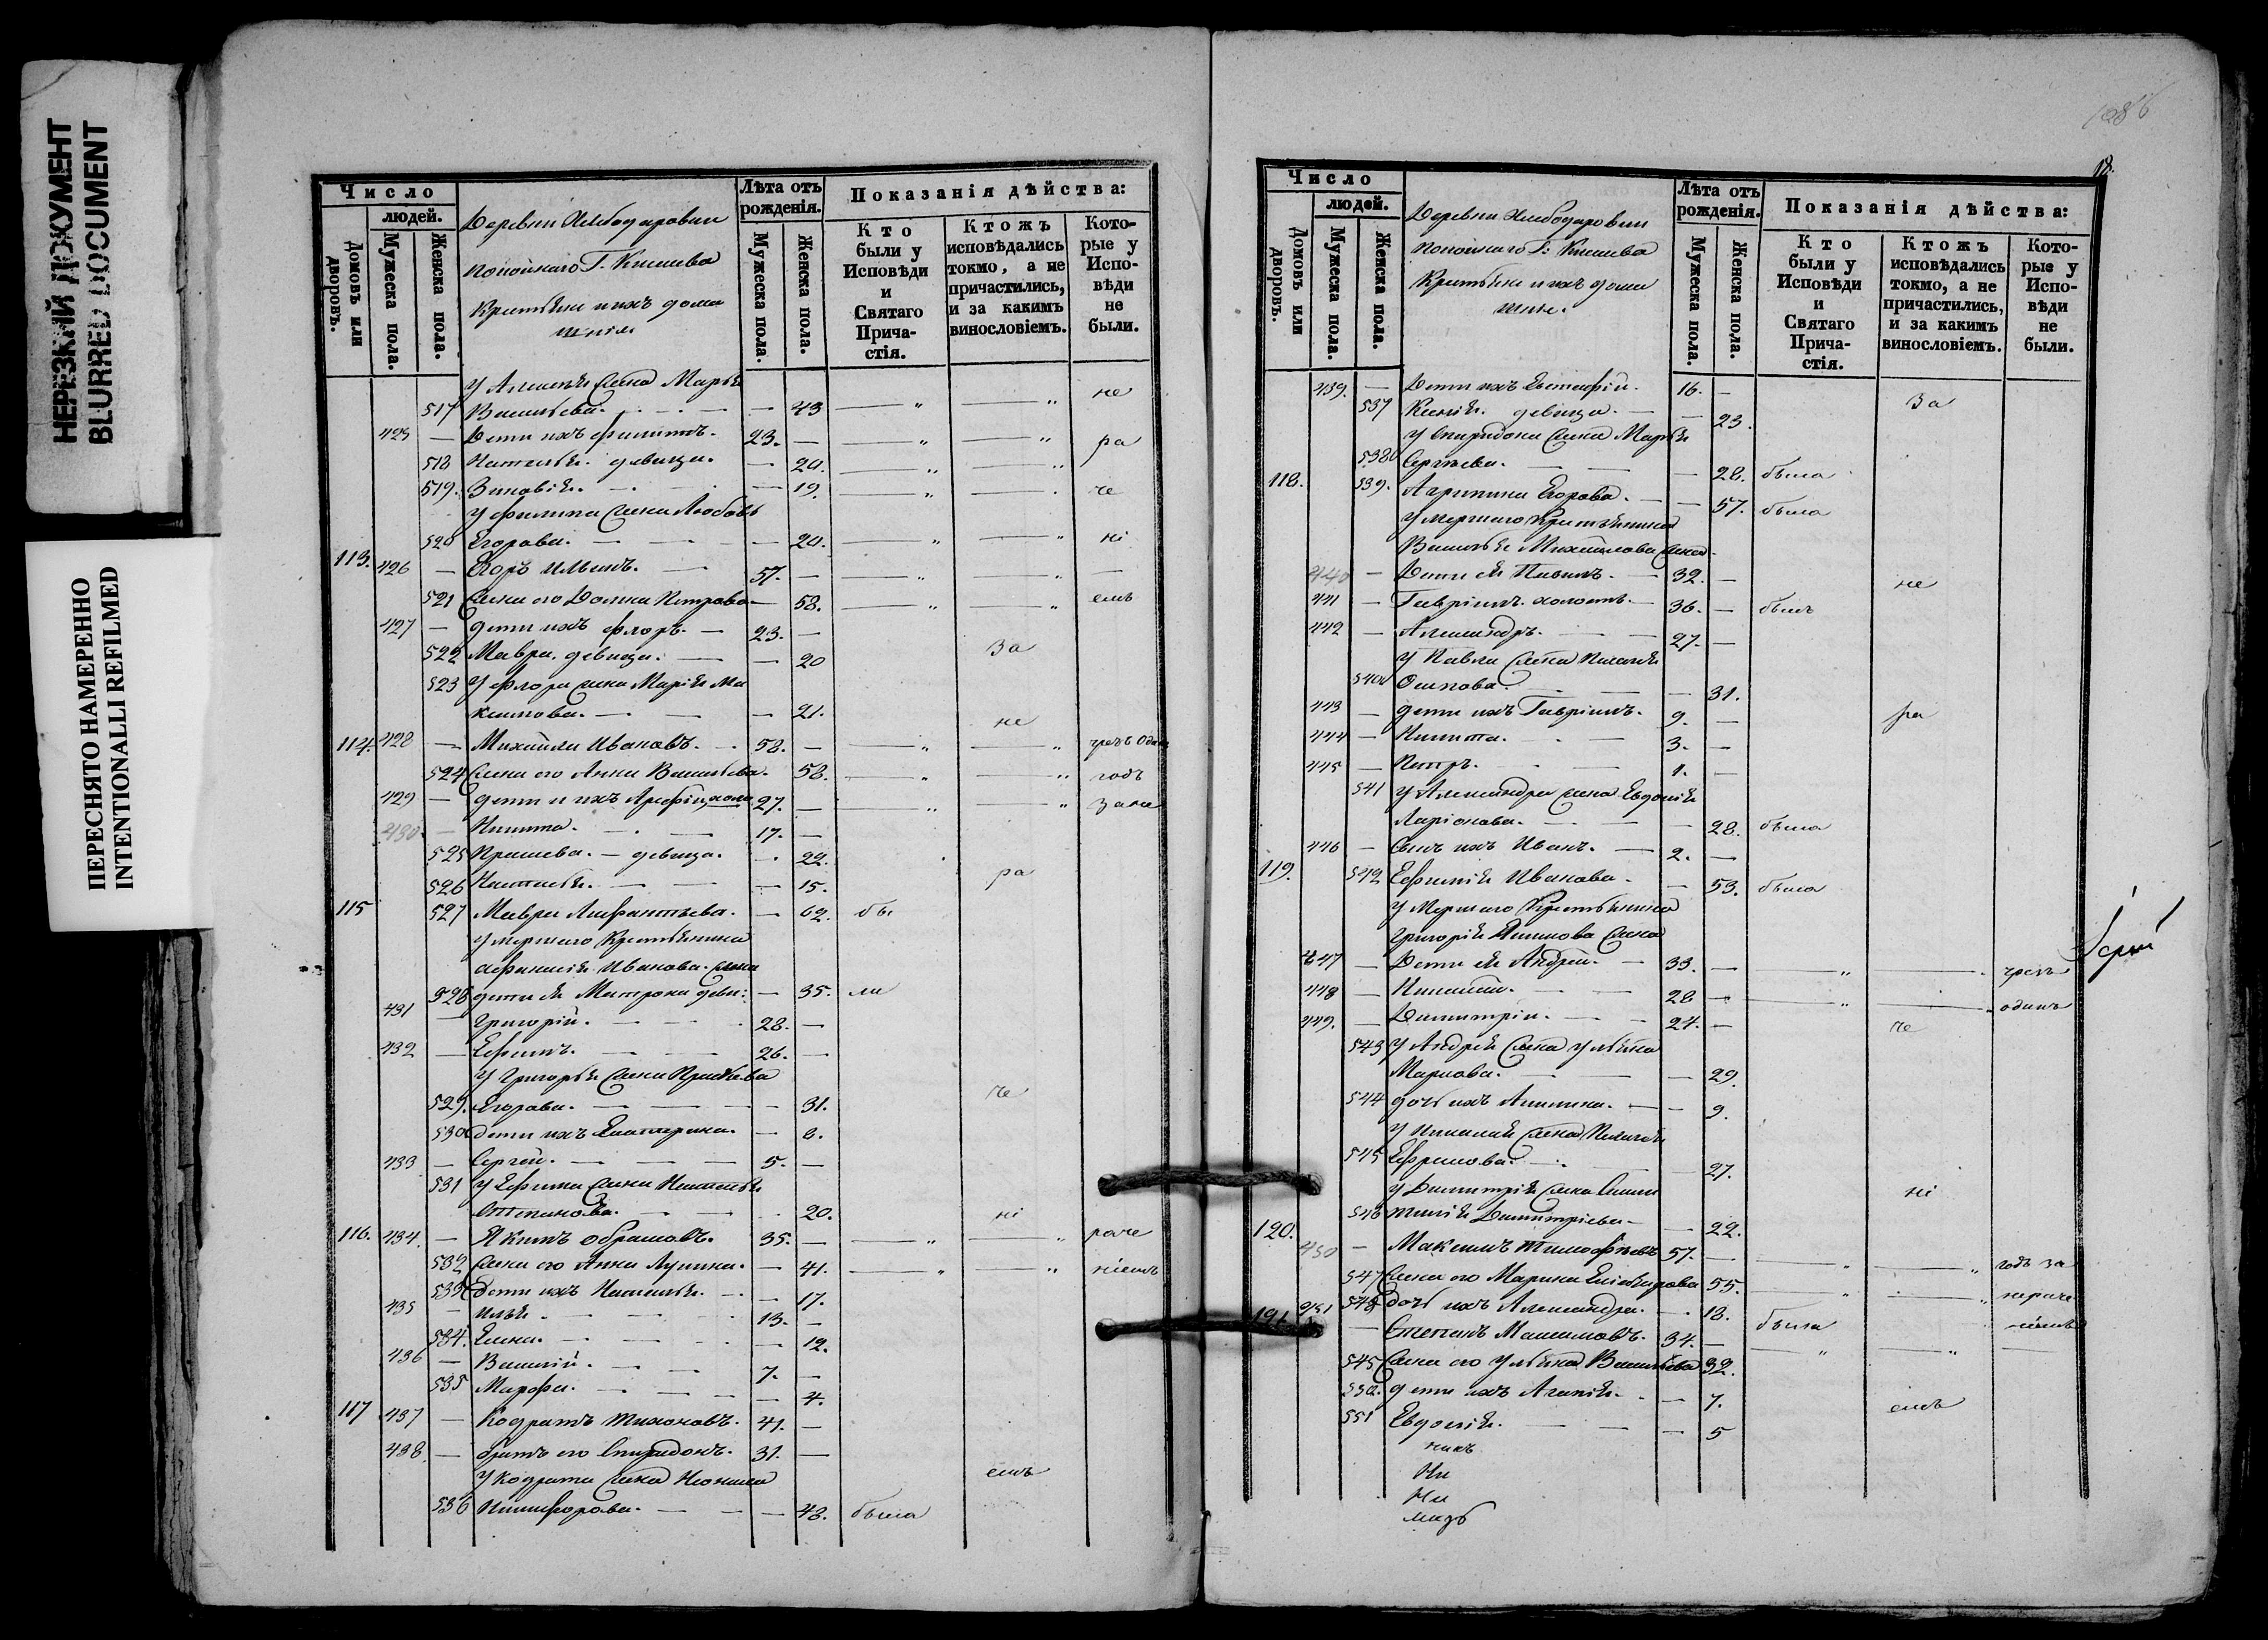 НЕРЕЗКИЙ ДОКУМЕНТ
BLURRED DOCUMENT
ПЕРЕСНЯТО НАМЕРЕННО
INTENTIONALLI REFILMED
Число
людей.
Домовъ или дворовъ.
Мужеска пола.
Женска пола.
Деревни Хлебодаровки
покойнаго Г. Кишева
Крестьяне и ихъ дома
шніи
Лѣта отъ рожденія.
Мужеска пола.
Женска пола.
Показанія дѣйства:
Кто были у Исповѣди и Святаго Прича- стія.
Ктожъ исповѣдались токмо, а не причастились, и за какимъ винословіемъ.
Кото- рые у Испо- вѣди не были.
У Алексея жена Марья
517 Васильева. — 43 не
425 — Дети ихъ Филипъ. 23. —
518 Наталья. девица. — 20. ра
519. Зиновія. — 19. че
У Филипа жена Любовь
520 Егорова. — 20. ні
113. 426 — Егоръ Ильинъ. 57. —
521 жена его Домна Петрова — 58. емъ
427 — дети ихъ Флоръ. — 23. —
522 Мавра. девица. — 20 За
523 У Флора жена Марія Ма
кимова. — 21. не
114. 428 — Михайла Ивановъ. 58. — чрезъ один
524 жена его Анна Васильева. 58. годъ
429 — дети ихъ Арефій холо 27. — за не
430 — Никита. 17. —
525 Прасковья. — девица. 22.
526 Настасья. — 15. ра
115 527 Мавра — 62. бы
умершаго Крестьянина
Афанасія Иванова жена
528 дети ея Матрона деви: — 35. ли
431 — Григорій. 28. —
432 — Ефимъ. 26. —
У Григорья жена Прасковья
529. Егорова. — 31. че
530 дети ихъ Екатерина. — 8.
433 — Сергей. 5. —
531 У Ефима жена Наталья
Степанова. 20. ні
116. 434. — Якимъ Обрамовъ. 35. — раче
532 жена его Анна Лукина. — 41. ніемъ
533 дети ихъ Наталья. — 17.
435 — Илья. 13. —
534. Елена. — 12.
436 — Василій. 7. —
535 Марфа. — 4.
117 437 — Кодратъ Тихоновъ. 41. —
438. — братъ его Спиридонъ. 31. —
У Кодрата жена Неонила емъ
536 Никифорова. — 43. была
18.
Число
людей.
Домовъ или дворовъ.
Мужеска пола.
Женска пола.
Деревни Хлебодаровки
покойнаго Г: Кишева
Крестьяне и ихъ дома
шніе.
Лѣта отъ рожденія.
Мужеска пола.
Женска пола.
Показанія дѣйства:
Кто были у Исповѣди и Святаго Прича- стія.
Ктожъ исповѣдались токмо, а не причастились, и за какимъ винословіемъ.
Кото- рые у Испо- вѣди не были.
439. — Дети ихъ Евстафій. 16. —
537 Ксенія. девица. — 23. За
У Спиридона жена Марья
538 Сергеева. — 28. была
118. 539. Агрипина Егорова. — 57. была
умершаго Крестьянина
Василья Михайлова жена
440 — Дети ея Павелъ. 32. — не
441 — Гаврілъ. холостъ. 36. — былъ
442 — Александръ. 27. —
У Павла жена Пелагея
540 Осипова. — 31.
443 — дети ихъ Гаврілъ. 9. — ра
444 — Никита. 3. —
445 — Петръ. 1. —
541 У Александра жена Евдокія
Ларіонова. — 28. была
446 — Сынъ ихъ Иванъ. 2. —
119. 542 Ефимія Иванова. — 53. была
умершаго Крестьянина
Григорія Якимова жена
447 — Дети ея Андрей. 33. — чрезъ
448 — Николай. 28 — одинъ
449. — Димитрій. 24. — че
543 У Андрея жена Ульяна
Маркова. — 29.
544 дочь ихъ Акилина. — 9.
У Николая жена Пелагея
545 Ефремова. 27.
У Димитрія жена Ана
546 Димитріева — 22. ні
120. 450 — Максимъ Тимофѣевъ 57. — годъ за
547 жена его Марина 55. нераче
548 дочь ихъ Александра. 18. была ніемъ
121 451 — Степанъ Максимовъ. 34. —
545 жена его Ульяна Васильева 32.
550. дети ихъ Агапія. — 7. емъ
551 Евдокія. — 5